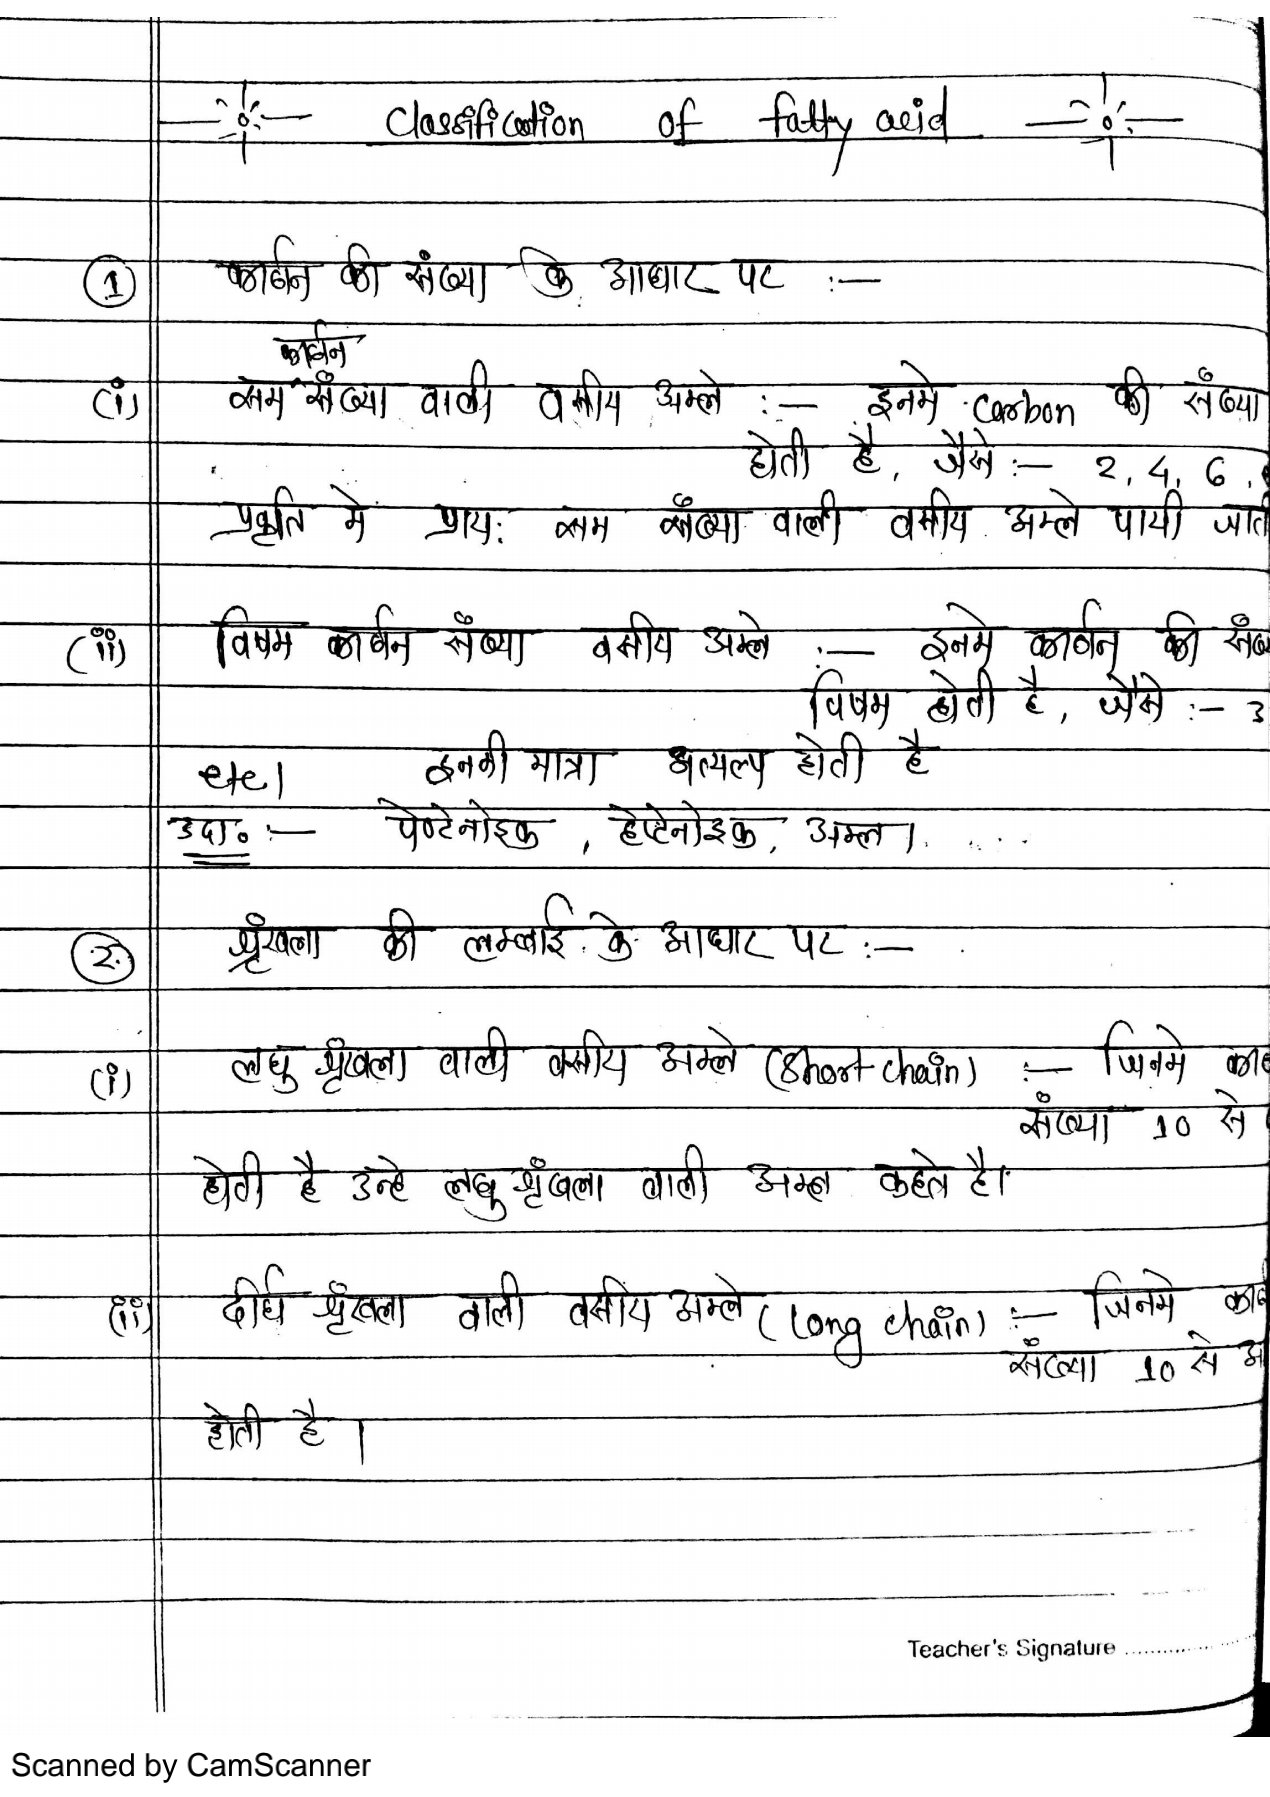 Classification of fatty acid
① कार्बन की संख्या के आधार पर :—
कार्बन
(i) सम संख्या वाली वसीय अम्ले :— इनमे carbon की संख्या
होती है, जैसे :— 2, 4, 6,
प्रकृति मे प्राय: सम संख्या वाली वसीय अम्ले पायी जाती
(ii) विषम कार्बन संख्या वसीय अम्ले :— इनमे कार्बन की
विषम होती है, जैसे :— 3
etc। इनकी मात्रा अत्यल्प होती है
उदा० :— पेण्टेनोइक, हेप्टेनोइक, अम्ल।
② श्रृंखला की लम्बाई के आधार पर :—
(i) लघु श्रृंखला वाली वसीय अम्ले (Short chain) :— जिनमे
संख्या 10 से
होती है उन्हे लघु श्रृंखला वाली अम्ल कहते है।
(ii) दीर्घ श्रृंखला वाली वसीय अम्ले (long chain) :— जिनमे
संख्या 10 से
होती है।
Teacher's Signature ..............
Scanned by CamScanner